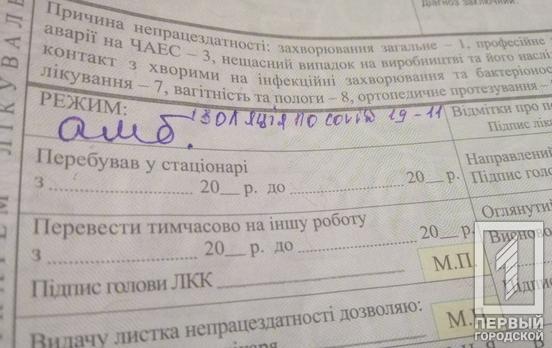 Діагноз заключний
Причина непрацездатності: захворювання загальне – 1, професійне
аварії на ЧАЕС – 3, нещасний випадок на виробництві та його наслі
контакт з хворими на інфекційні захворювання та бактеріонос
лікування – 7, вагітність та пологи – 8, ортопедичне протезування –
РЕЖИМ:
амб. ізоляція по covid 19 - 11
Відмітки про п
Підпис ліка
Перебував у стаціонарі
з ........ 20__ р. до ........ 20__ р.
Направлений
Підпис голо
Перевести тимчасово на іншу роботу
з ........ 20__ р. до ........ 20__ р.
Оглянутий
Висново
Підпис голови ЛКК
М.П.
Підпис
Видачу листка непрацездатності дозволяю:
М.П
ЛІКУВАЛ
1
ПЕРВЫЙ
ГОРОДСКОЙ